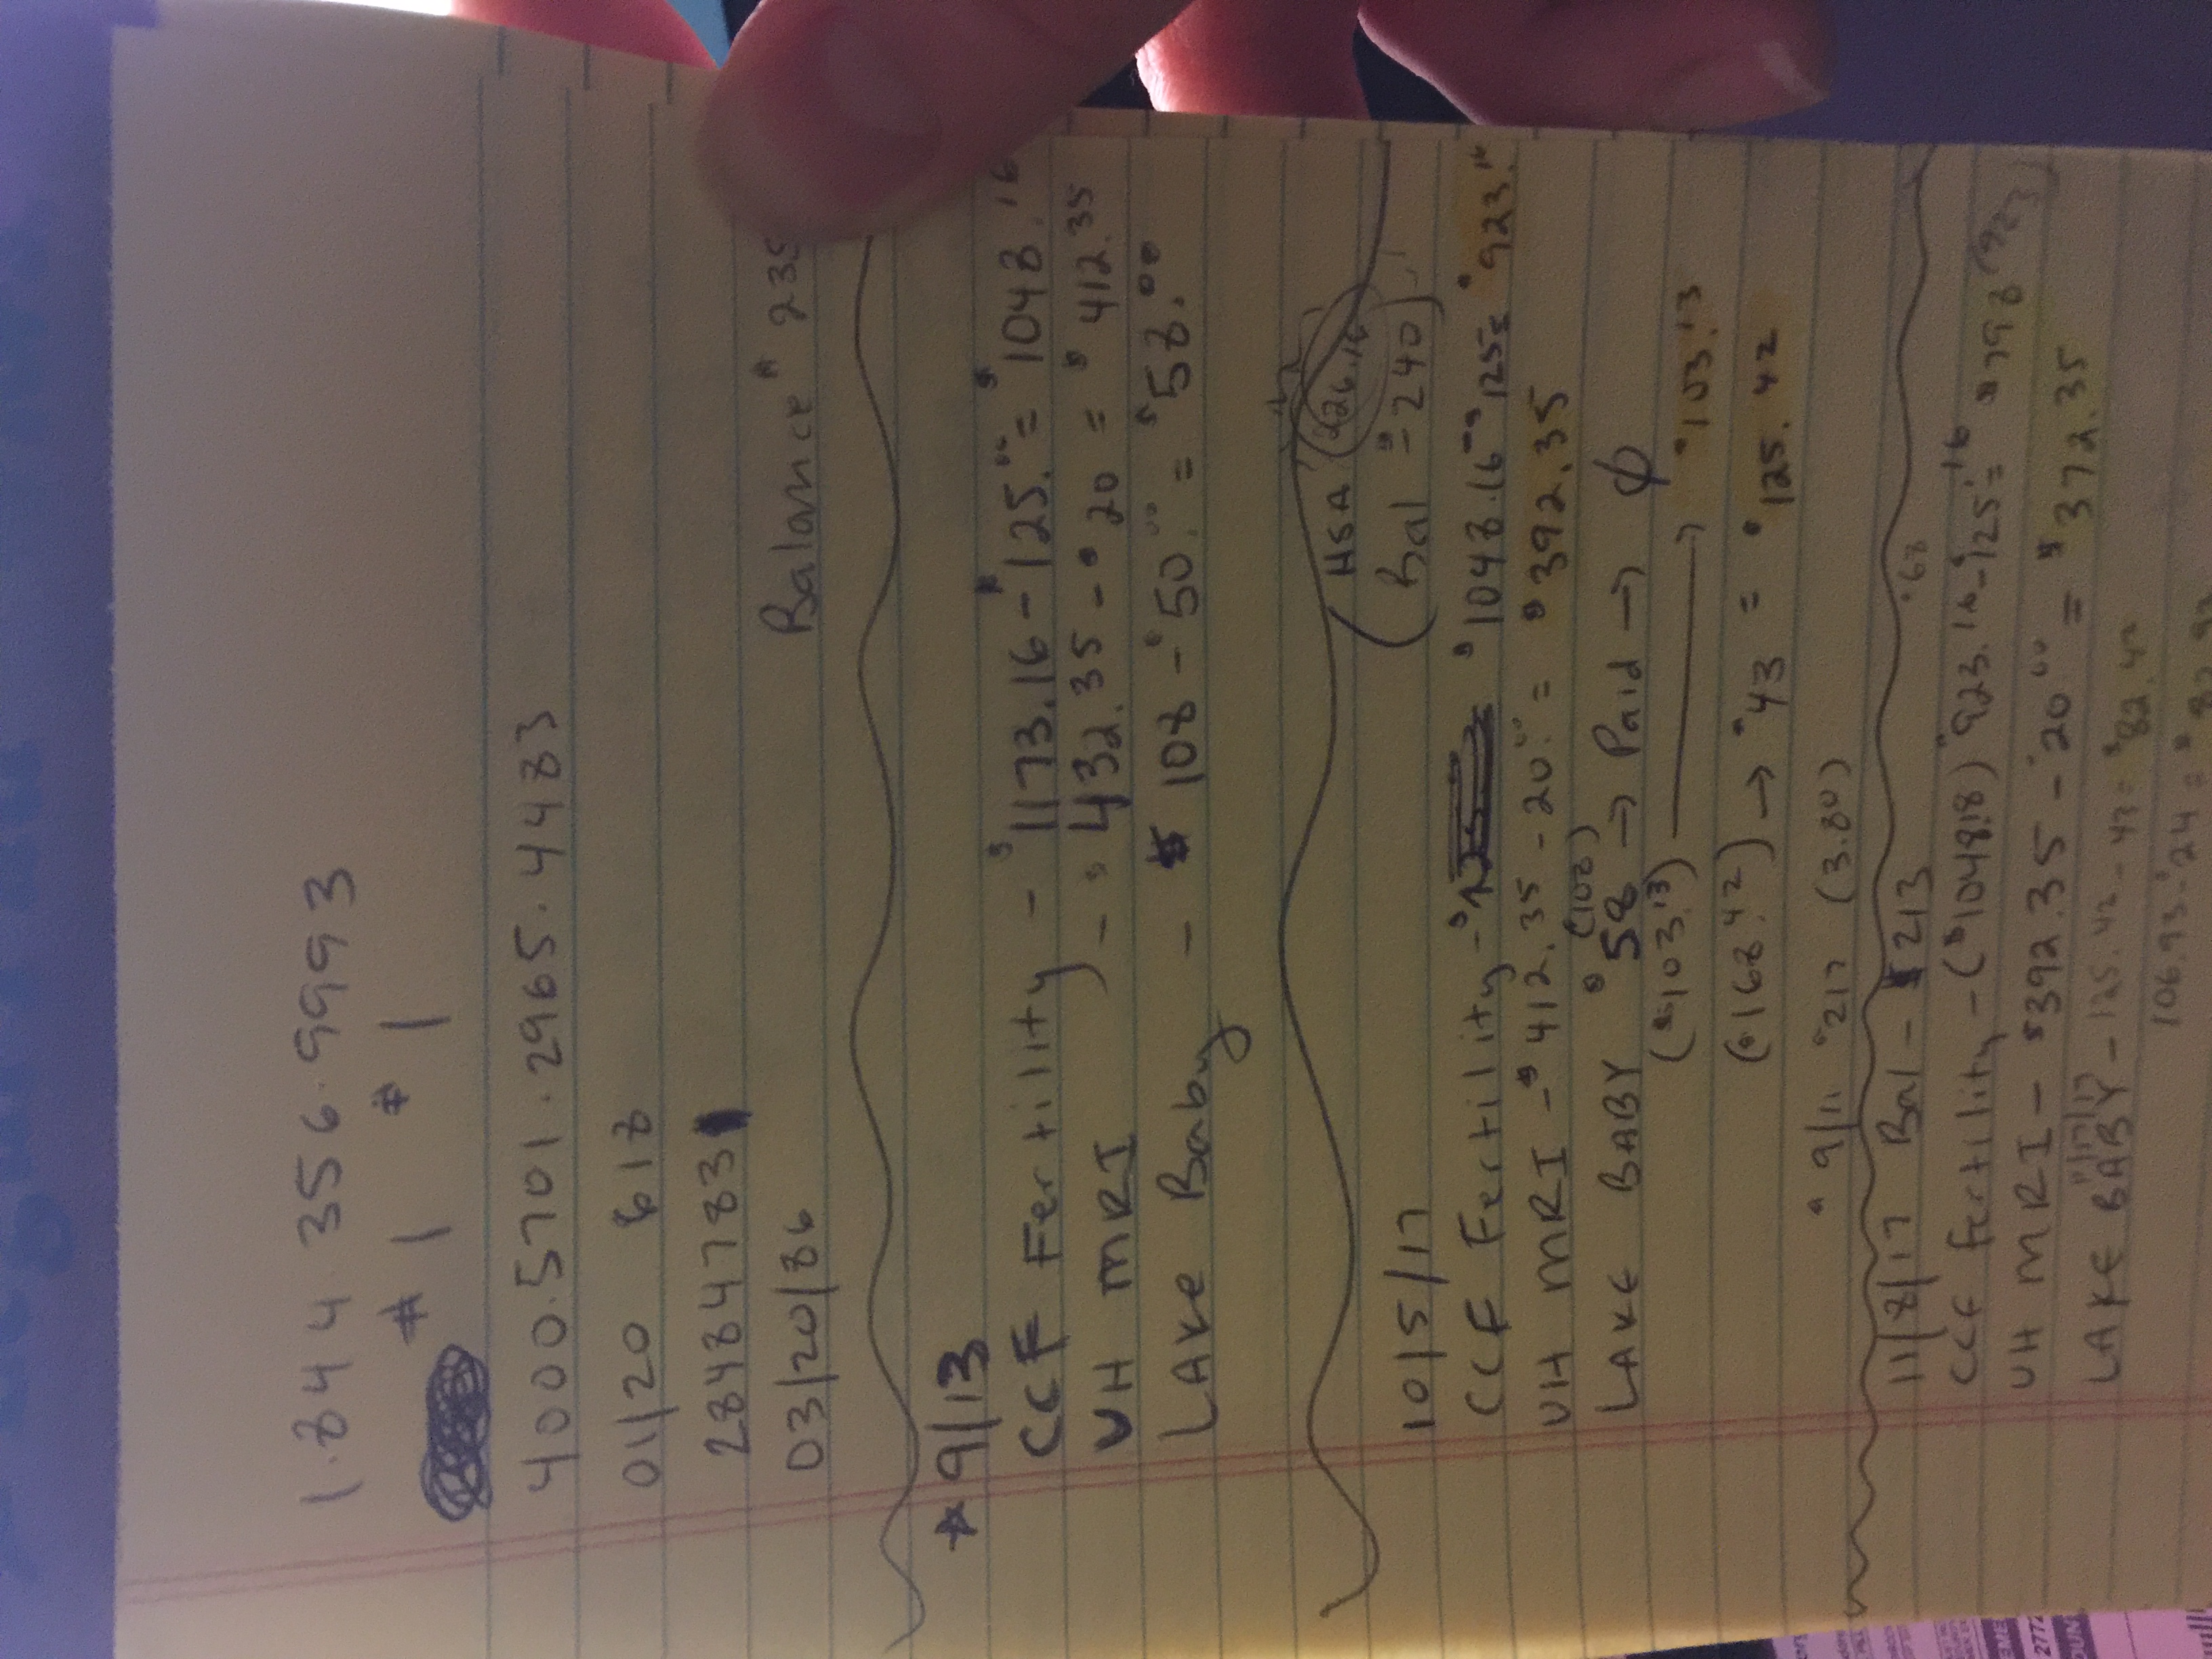 1.844.356.9993
# 1 # 1
4000.5701.2965.4483
01/20 618
28484783
03/20/86
Balance $ 235
* 9/13
CCF Fertility - $1173.16 - $125.00 = $1048.16
UH MRI - $432.35 - $20 = $412.35
LAKE Baby - $108 - $50.00 = $58.00
(HSA 226.16
Bal = 240)
10/5/17
CCF Fertility - $1048.16 - $125 = $923.16
UH MRI - $412.35 - 20.00 = $392.35
(108)
LAKE BABY $58 → Paid → ϕ
($103.13) → $103.13
($168.42) → $43 = $125.42
9/11 $217 (3.80)
11/8/17 Bal - $213
$68
CCF fertility - ($1048.18) $923.16 - $125 = $798.16
UH MRI - $392.35 - 20.00 = $372.35
11/17/17
LAKE BABY - 125.42 - 43 = $82.42
106.93 - $24 =